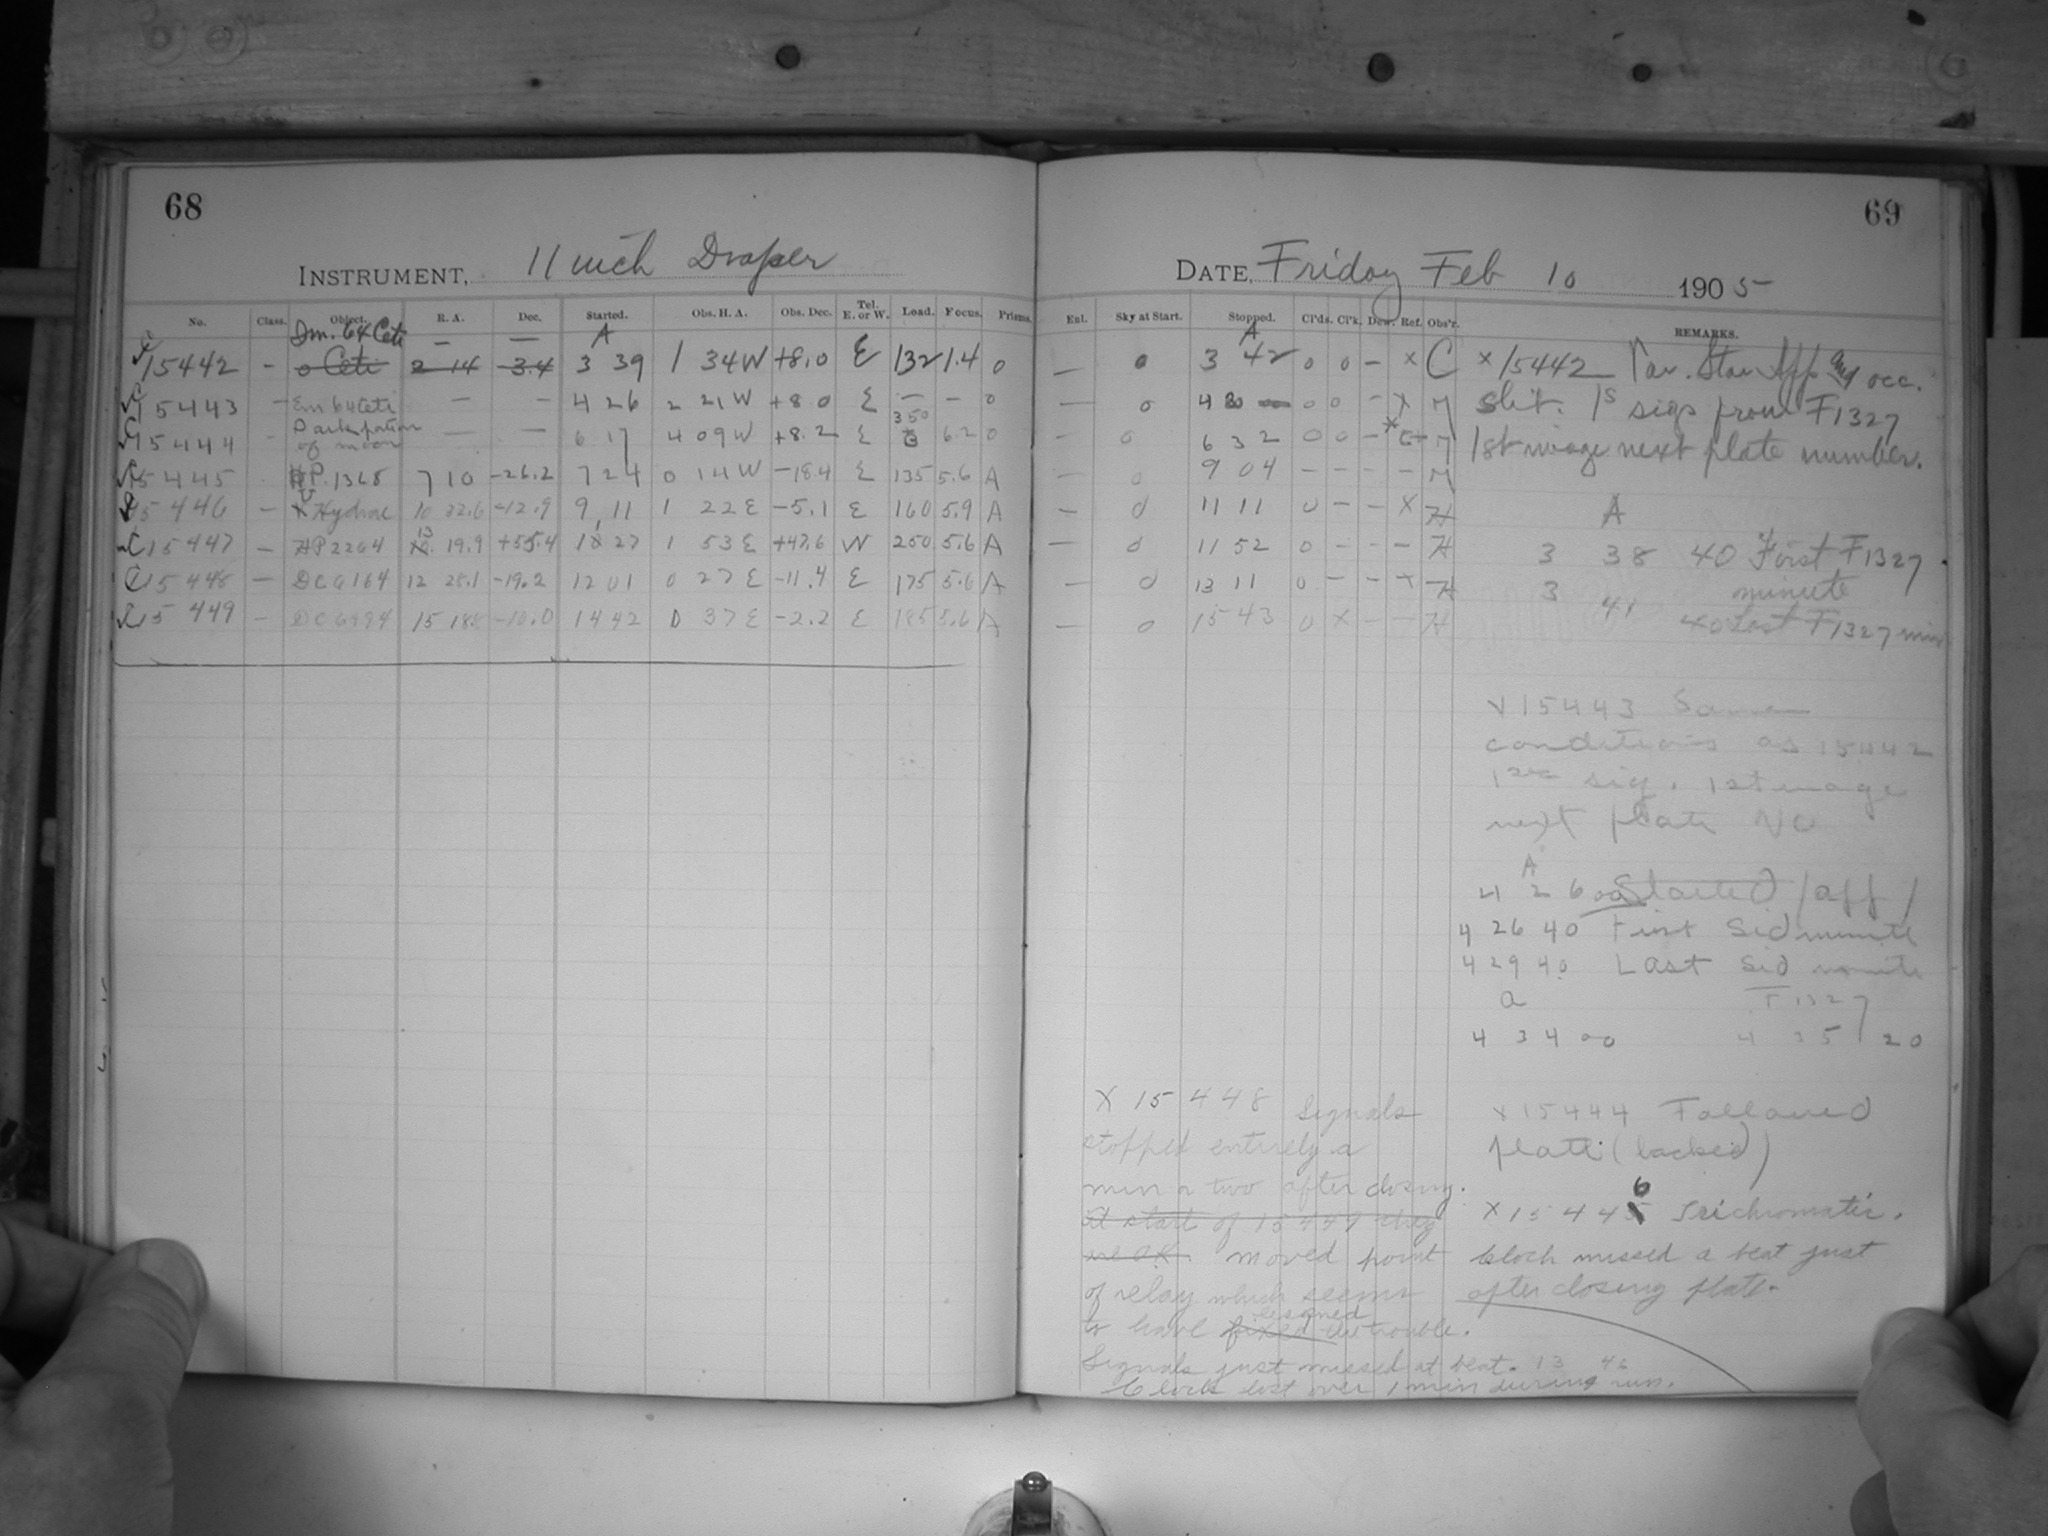 68
INSTRUMENT, 11 inch Draper
No. Class. Object. R. A. Dec. Started. Obs. H. A. Obs. Dec. Tel. E. or W. Load. Focus. Prisms.
Im. 64 Ceti — — A
15442 - o Ceti 2 14 -3.4 3 39 1 34 W +8.0 E 132 1.4 0
15443 - Em 64 Ceti — — 4 26 2 21 W +8.0 E — — 0
15444 - Dark portion of moon — — 6 17 4 09 W +8.2 E 350 6.2 0
15445 H.P. 1368 7 10 -26.2 7 24 0 14 W -18.4 E 135 5.6 A
15446 - U Hydrae 10 32.6 -12.9 9 11 1 22 E -5.1 E 160 5.9 A
15447 - HP 2264 13 19.9 +55.4 27 1 53 E +47.6 W 250 5.6 A
15448 - DC 6164 12 28.1 -19.2 12 01 0 27 E -11.4 E 175 5.6 A
15449 - DC 15 18 -10.0 14 42 0 37 E -2.2 E 185 5.6 A
69
DATE, Friday Feb 10 1905
Enl. Sky at Start. Stopped. Cl'ds. Cl'k. Dew. Ref. Obs'r. REMARKS.
A
— 0 3 42 0 0 - x C
— 0 4 30 0 0 - x M
— 0 6 32 0 0 - M
— 0 9 04 - - - - M
— 0 11 11 0 - - x H
— 0 11 52 0 - - - H
— 0 13 11 0 - - x H
— 0 15 43 0 x - - H
x 15442 Var. Star App occ.
slit. 1s sigs from F1327
1st image next plate number.
A
3 38 40 First F1327
minute
3 41 40 Last F1327 min
x 15443 Same
conditions as 15442
sig. 1st image
next plate No
A
4 26 00 Started /aff/
4 26 40 First Sid minute
4 29 40 Last Sid minute
a F1327
4 34 00 4 35 20
x 15444 Followed
plate (backed)
x 15446 Trichromatic.
Clock missed a beat just
after closing plate.
x 15448 Signals
stopped entirely a
min or two after closing.
At start of 15449 they
are O.K. moved point
of relay which seems
to have fixed lessened trouble.
Signals just missed at beat. 13 46
Clock lost over 1 min during run.